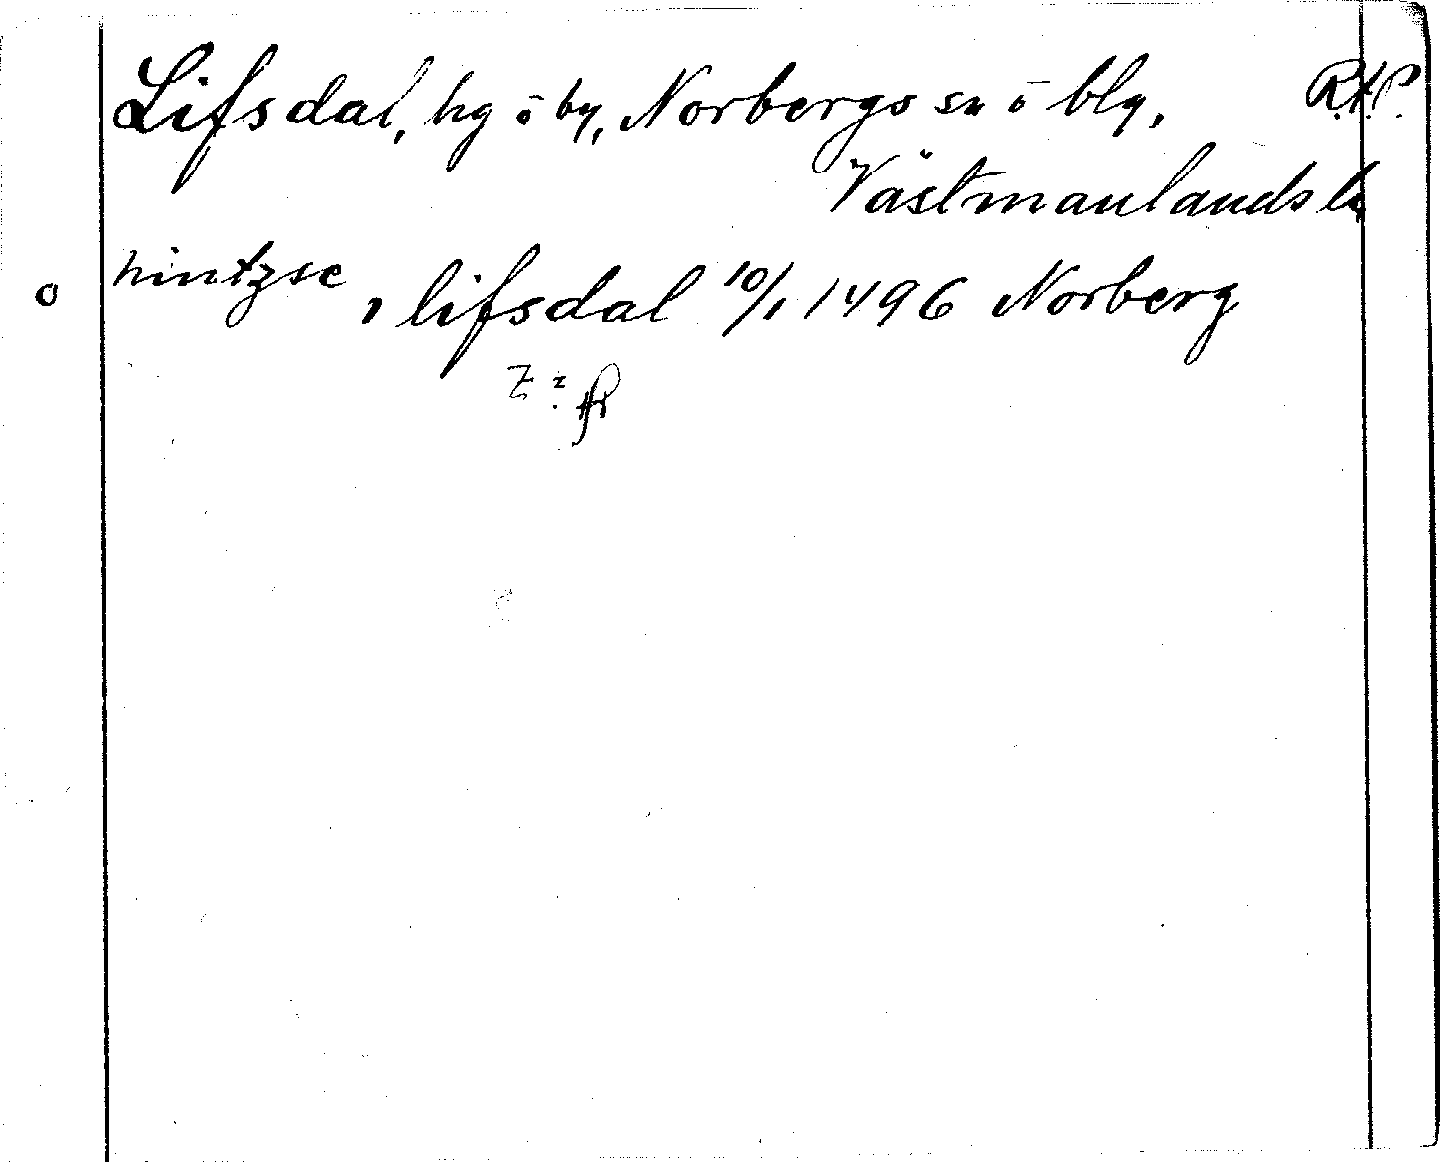 Lifsdal, hg o by, Norbergs sn o blg, R.A.P.
Västmanlands l.
o hintzse, lifsdal 10/1 1496 Norberg